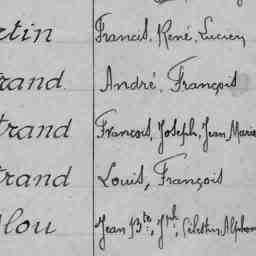 rtin Francis, René, Lucien
rand André, François
trand Francois, Joseph, Jean Marie
trand Louis, François
llou Jean Bte, Jph, Célestin Alphon